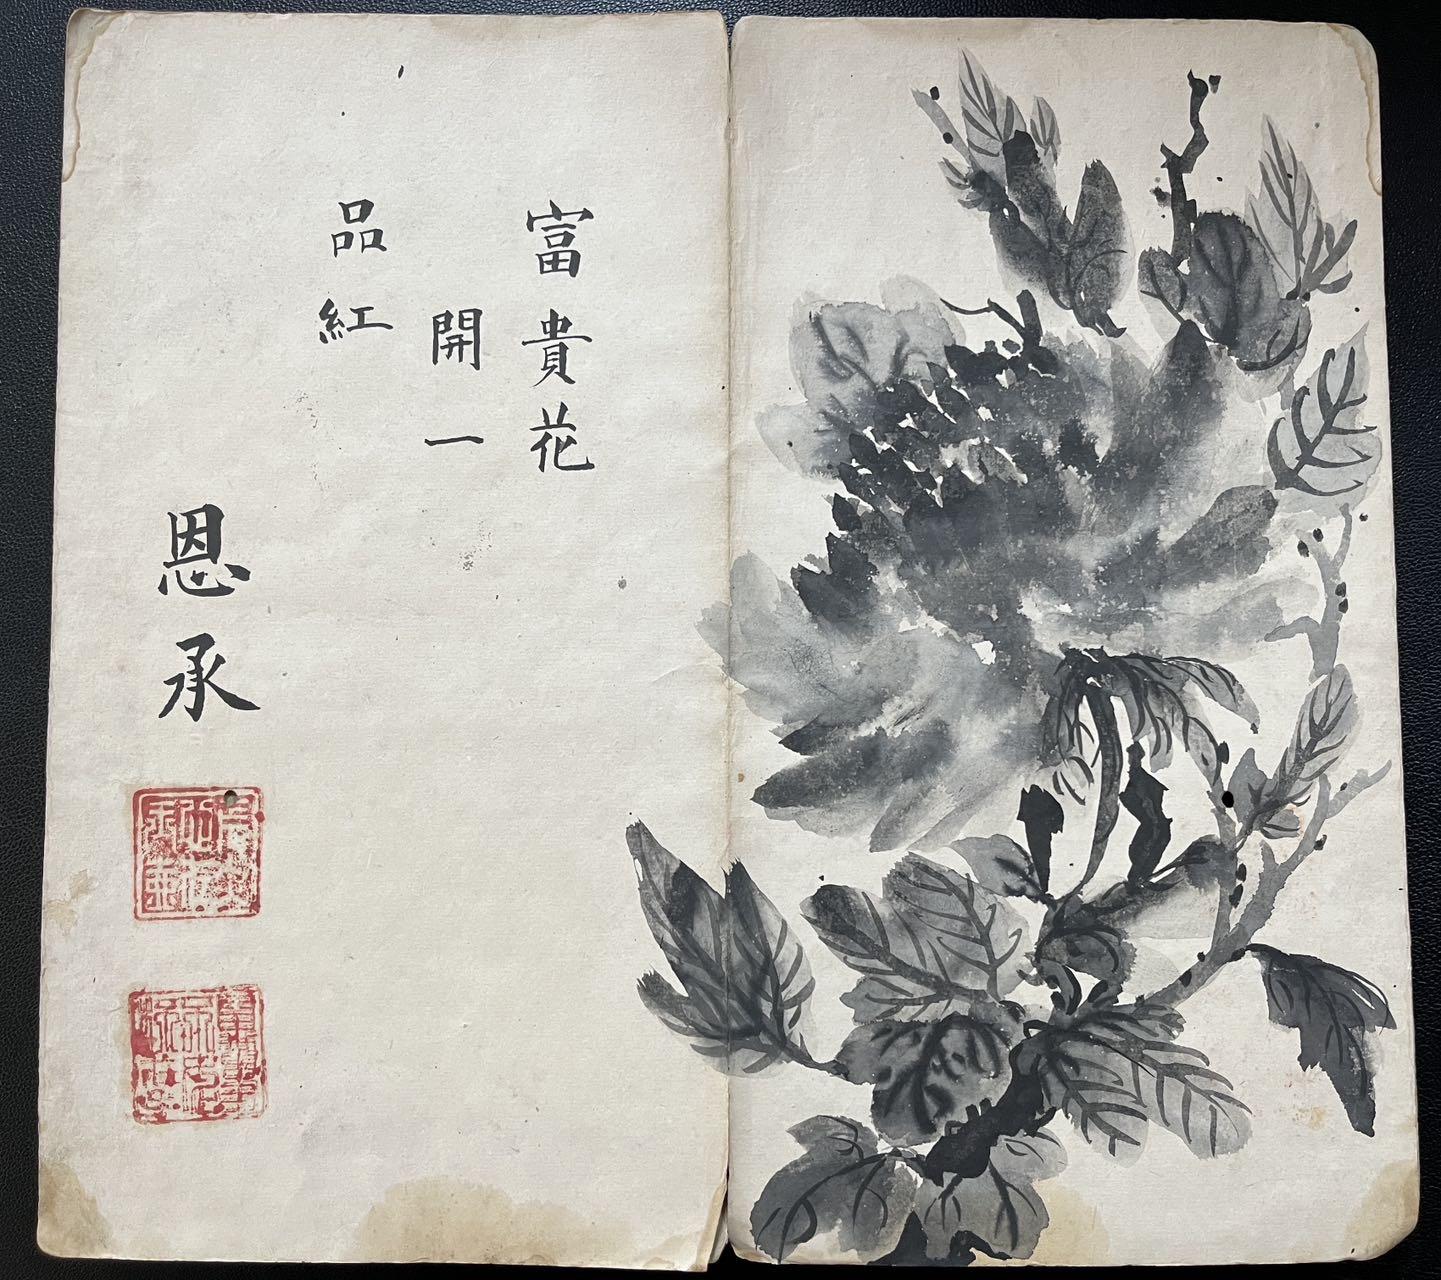 富貴花
開一
品紅
恩承